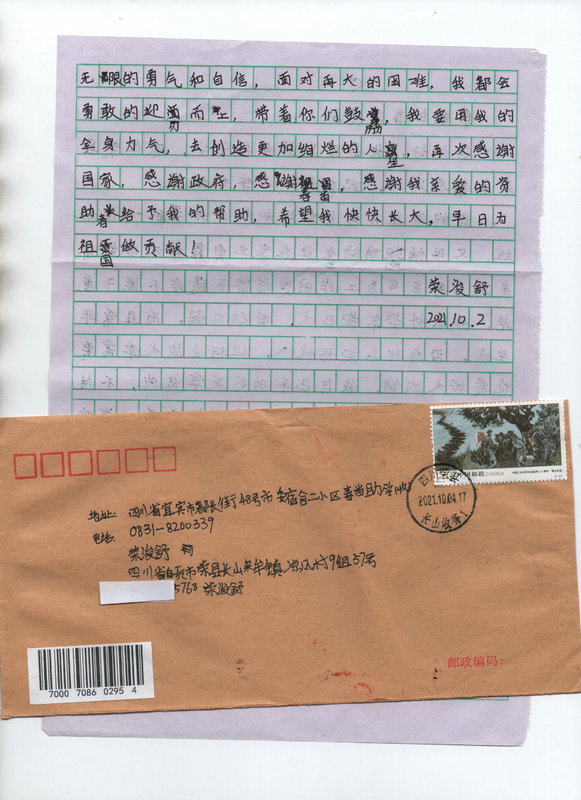 无限的勇气和自信，面对再大的困难，我都会
勇敢的迎面而上，带着你们鼓励，我要用我的
全身力气，去创造更加绚烂的人生，再次感谢
国家，感谢政府，感谢春苗，感谢我亲爱的资
助者给予我的帮助，希望我快快长大，早日为
祖国做贡献！
荣浚舒
2021.10.2
中国邮政 CHINA
2021.10.04.17
地址：四川省宜宾市都长街48号市
电话：0831-8200339
荣浚舒
四川省自贡市荣县长山 镇 村9组57号
5768 荣浚舒
邮政编码：
7000 7086 0295 4